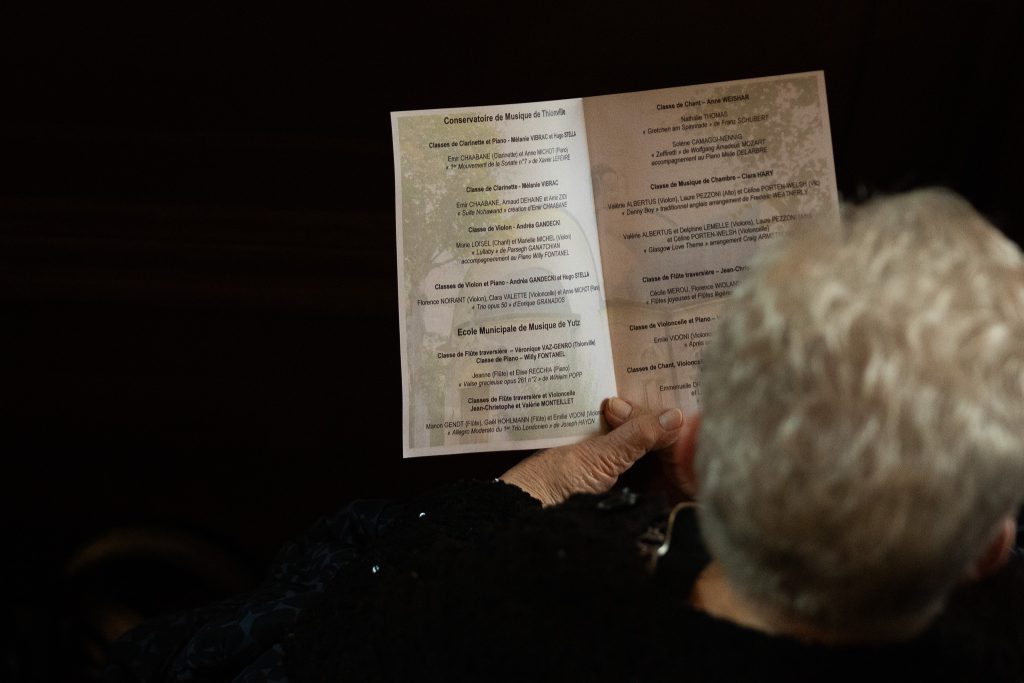 Conservatoire de Musique de Thionville
Classes de Clarinette et Piano - Mélanie VIBRAC et Hugo STELLA
Emir CHAABANE (Clarinette) et Anne MICHOT (Piano)
« 1er Mouvement de la Sonate n°7 » de Xavier LEFEVRE
Classe de Clarinette - Mélanie VIBRAC
Emir CHAABANE, Arnaud DEHAINE et Amir ZIDI
« Suite Nohawand » création d'Emir CHAABANE
Classe de Violon - Andréa GANDECKI
Marie LOISEL (Chant) et Marielle MICHEL (Violon)
« Lullaby » de Parsegh GANATCHIAN
accompagnement au Piano Willy FONTANEL
Classes de Violon et Piano - Andréa GANDECKI et Hugo STELLA
Florence NOIRANT (Violon), Clara VALETTE (Violoncelle) et Anne MICHOT (Piano)
« Trio opus 50 » d'Enrique GRANADOS
Ecole Municipale de Musique de Yutz
Classe de Flûte traversière – Véronique VAZ-GENRO (Thionville)
Classe de Piano – Willy FONTANEL
Jeanne (Flûte) et Elise RECCHIA (Piano)
« Valse gracieuse opus 261 n°2 » de Wilhelm POPP
Classes de Flûte traversière et Violoncelle
Jean-Christophe et Valérie MONTEILLET
Manon GENDT (Flûte), Gaël HOHLMANN (Flûte) et Emilie VIDONI
« Allegro Moderato du 1er Trio Londonien » de Joseph HAYDN
Classe de Chant – Anne WEISHAR
Nathalie THOMAS
« Gretchen am Spinnrade » de Franz SCHUBERT
Solène CAMAGGI-NENNIG
« Zeffiretti » de Wolfgang Amadeus MOZART
accompagnement au Piano Meile DELARBRE
Classe de Musique de Chambre – Clara HARY
Valérie ALBERTUS (Violon), Laura PEZZONI (Alto) et Céline PORTEN-WELSH
« Danny Boy » traditionnel anglais arrangement de Frédéric WEATHERLY
Valérie ALBERTUS et Delphine LEMELLE (Violons), Laura PEZZONI
et Céline PORTEN-WELSH (Violoncelle)
« Glasgow Love Theme » arrangement Craig
Classe de Flûte traversière – Jean
Cécile MEROU, Florence
« Flûtes joyeuses et Flûtes
Classe de Violoncelle et Piano –
Emilie VIDONI
« Après
Classes de Chant,
Emmanuelle
et